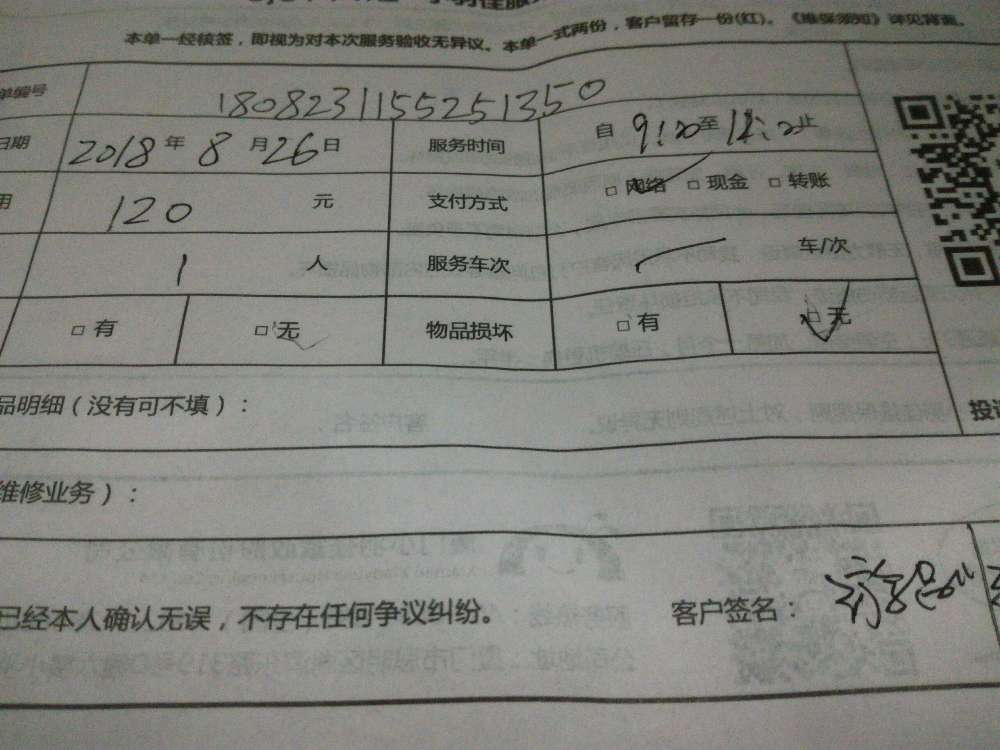 本单一经核签，即视为对本次服务验收无异议。本单一式两份，客户留存一份(红)。《维保须知》详见背面。
单编号 180823115525251350
日期 2018年8月26日 服务时间 自9:00至12:00止
用 120 元 支付方式 □网络 □现金 □转账
1 人 服务车次 车/次
□有 □无 物品损坏 □有 □无
品明细（没有可不填）：
投
维修业务）：
已经本人确认无误，不存在任何争议纠纷。 客户签名：